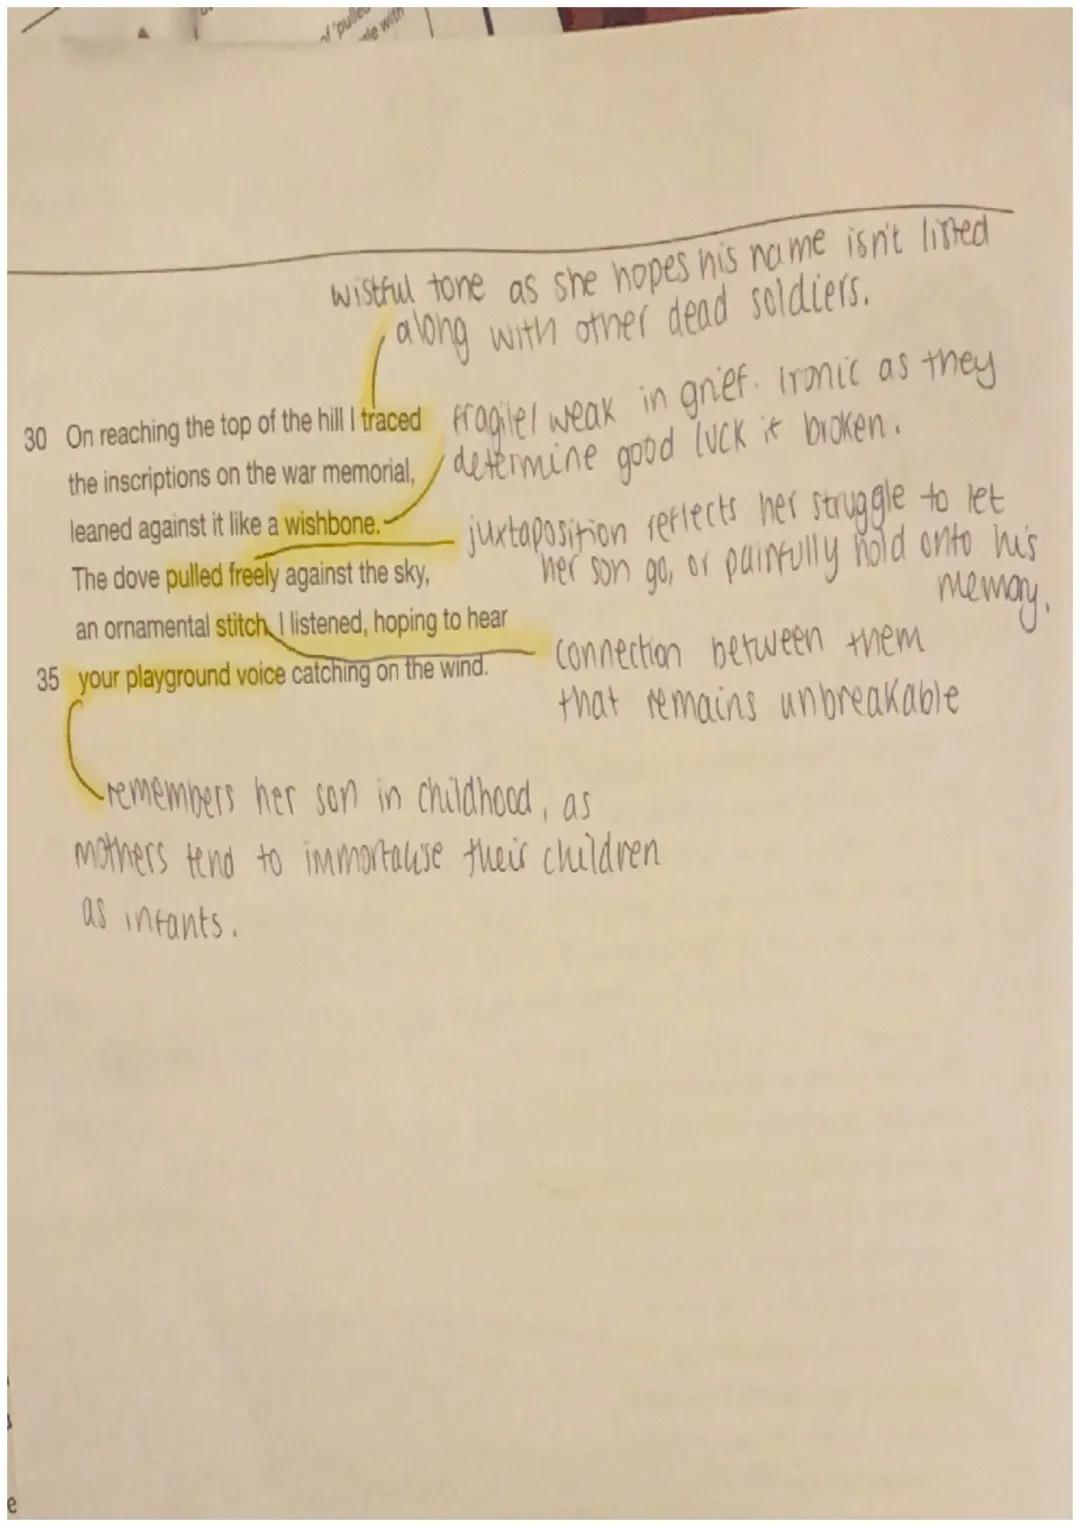 of 'pulled
with
wistful tone as she hopes his name isn't listed
along with other dead soldiers.
30 On reaching the top of the hill I traced
the inscriptions on the war memorial,
leaned against it like a wishbone.
The dove pulled freely against the sky,
an ornamental stitch, I listened, hoping to hear
35 your playground voice catching on the wind.
fragile/ weak in grief. Ironic as they
determine good luck if broken.
juxtaposition reflects her struggle to let
her son go, or painfully hold onto his
memory.
connection between them
that remains unbreakable
remembers her son in childhood, as
mothers tend to immortalise their children
as infants.
e